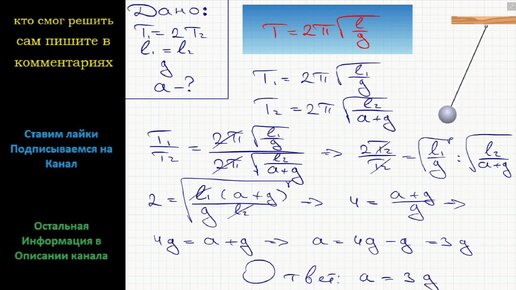 кто смог решить
сам пишите в
комментариях
Ставим лайки
Подписываемся на
Канал
Остальная
Информация в
Описании канала
Дано:
T₁ = 2T₂
l₁ = l₂
g
a - ?
T = 2π√(l/g)
T₁ = 2π√(l₁/g)
T₂ = 2π√(l₂/(a+g))
T₁/T₂ = 2π√(l₁/g) / 2π√(l₂/(a+g)) => 2T₂/T₂ = √(l₁/g) : √(l₂/(a+g))
2 = √(l₁(a+g)/(g l₂)) => 4 = (a+g)/g =>
4g = a+g => a = 4g - g = 3g
Ответ: a = 3g